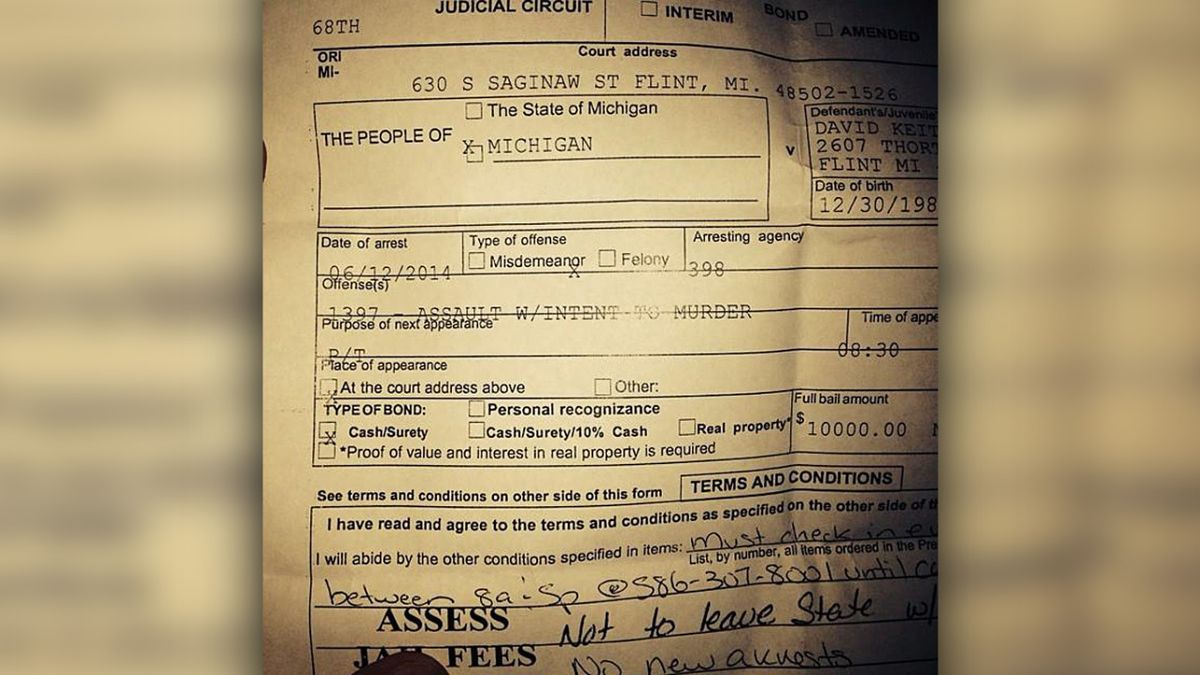 JUDICIAL CIRCUIT
INTERIM BOND
AMENDED
68TH
ORI
MI-
Court address
630 S SAGINAW ST FLINT, MI. 48502-1526
THE PEOPLE OF
The State of Michigan
X MICHIGAN
v
Defendant's/Juvenile
DAVID KEIT
2607 THOR
FLINT MI
Date of birth
12/30/198
Date of arrest
06/12/2014
Type of offense
Misdemeanor
X
Felony
Arresting agency
398
Offense(s)
1397 - ASSAULT W/INTENT TO MURDER
Purpose of next appearance
P/T
Time of appe
08:30
Place of appearance
At the court address above
Other:
X
TYPE OF BOND:
Personal recognizance
X Cash/Surety
Cash/Surety/10% Cash
Real property*
*Proof of value and interest in real property is required
Full bail amount
$ 10000.00
See terms and conditions on other side of this form
TERMS AND CONDITIONS
I have read and agree to the terms and conditions as specified on the other side of th
I will abide by the other conditions specified in items: must check in ev
List, by number, all items ordered in the Pre
between 8a-5p @586-307-8001 until
ASSESS
Not to leave State w/
JAIL FEES
No new arrests